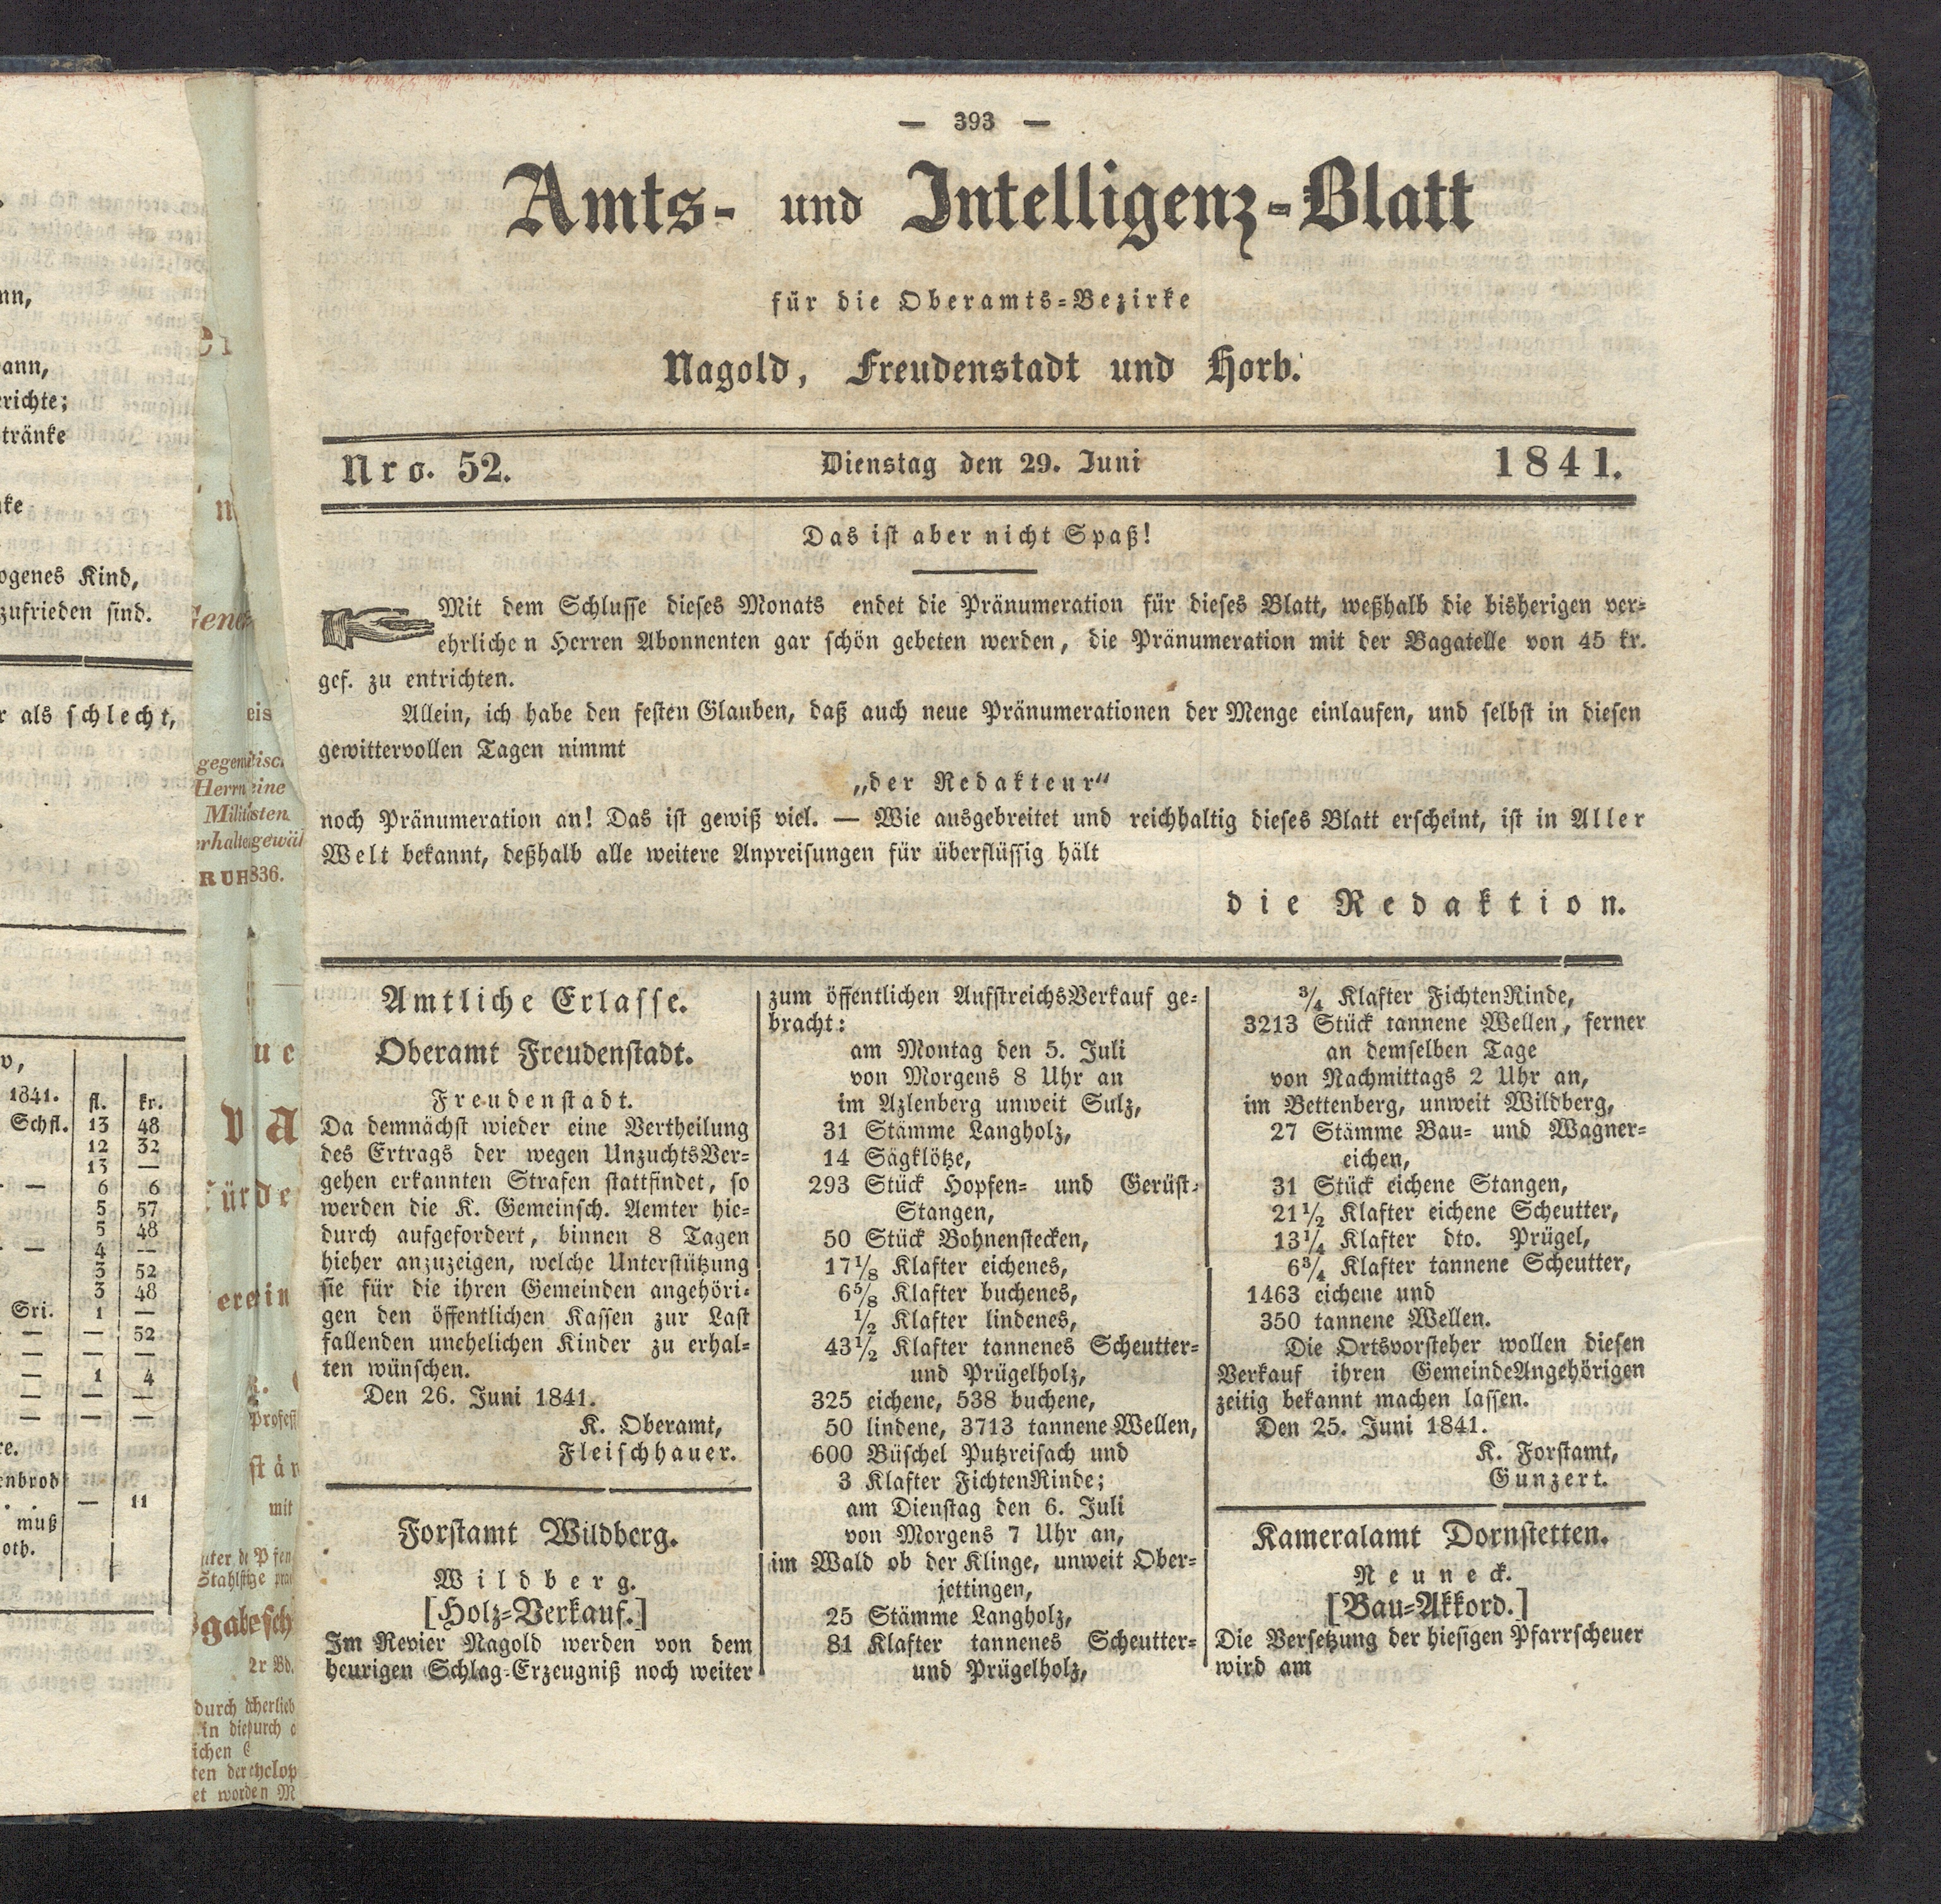 — 393 —
Amts- und Intelligenz-Blatt
für die Oberamts-Bezirke
Nagold, Freudenstadt und Horb.
Nro. 52. Dienstag den 29. Juni 1841.
Das ist aber nicht Spaß!
Mit dem Schlusse dieses Monats endet die Pränumeration für dieses Blatt, weßhalb die bisherigen ver-
ehrlichen Herren Abonnenten gar schön gebeten werden, die Pränumeration mit der Bagatelle von 45 kr.
gef. zu entrichten.
Allein, ich habe den festen Glauben, daß auch neue Pränumerationen der Menge einlaufen, und selbst in diesen
gewittervollen Tagen nimmt
„der Redakteur“
noch Pränumeration an! Das ist gewiß viel. — Wie ausgebreitet und reichhaltig dieses Blatt erscheint, ist in Aller
Welt bekannt, deßhalb alle weitere Anpreisungen für überflüssig hält
die Redaktion.
Amtliche Erlasse.
Oberamt Freudenstadt.
Freudenstadt.
Da demnächst wieder eine Vertheilung
des Ertrags der wegen UnzuchtsVer-
gehen erkannten Strafen stattfindet, so
werden die K. Gemeinsch. Aemter hie-
durch aufgefordert, binnen 8 Tagen
hieher anzuzeigen, welche Unterstützung
sie für die ihren Gemeinden angehöri-
gen den öffentlichen Kassen zur Last
fallenden unehelichen Kinder zu erhal-
ten wünschen.
Den 26. Juni 1841.
K. Oberamt,
Fleischhauer.
Forstamt Wildberg.
Wildberg.
[Holz-Verkauf.]
Im Revier Nagold werden von dem
heurigen Schlag-Erzeugniß noch weiter
zum öffentlichen AufstreichsVerkauf ge-
bracht:
am Montag den 5. Juli
von Morgens 8 Uhr an
im Azlenberg unweit Sulz,
31 Stämme Langholz,
14 Sägklötze,
293 Stück Hopfen- und Gerüst-
Stangen,
50 Stück Bohnenstecken,
17 1/8 Klafter eichenes,
6 5/8 Klafter buchenes,
1/2 Klafter lindenes,
43 1/2 Klafter tannenes Scheutter-
und Prügelholz,
325 eichene, 538 buchene,
50 lindene, 3713 tannene Wellen,
600 Büschel Putzreisach und
3 Klafter FichtenRinde;
am Dienstag den 6. Juli
von Morgens 7 Uhr an,
im Wald ob der Klinge, unweit Ober-
jettingen,
25 Stämme Langholz,
81 Klafter tannenes Scheutter-
und Prügelholz,
3/4 Klafter FichtenRinde,
3213 Stück tannene Wellen, ferner
an demselben Tage
von Nachmittags 2 Uhr an,
im Bettenberg, unweit Wildberg,
27 Stämme Bau- und Wagner-
eichen,
31 Stück eichene Stangen,
21 1/2 Klafter eichene Scheutter,
13 1/4 Klafter dto. Prügel,
6 3/4 Klafter tannene Scheutter,
1463 eichene und
350 tannene Wellen.
Die Ortsvorsteher wollen diesen
Verkauf ihren GemeindeAngehörigen
zeitig bekannt machen lassen.
Den 25. Juni 1841.
K. Forstamt,
Gunzert.
Kameralamt Dornstetten.
Neuneck.
[Bau-Akkord.]
Die Versetzung der hiesigen Pfarrscheuer
wird am